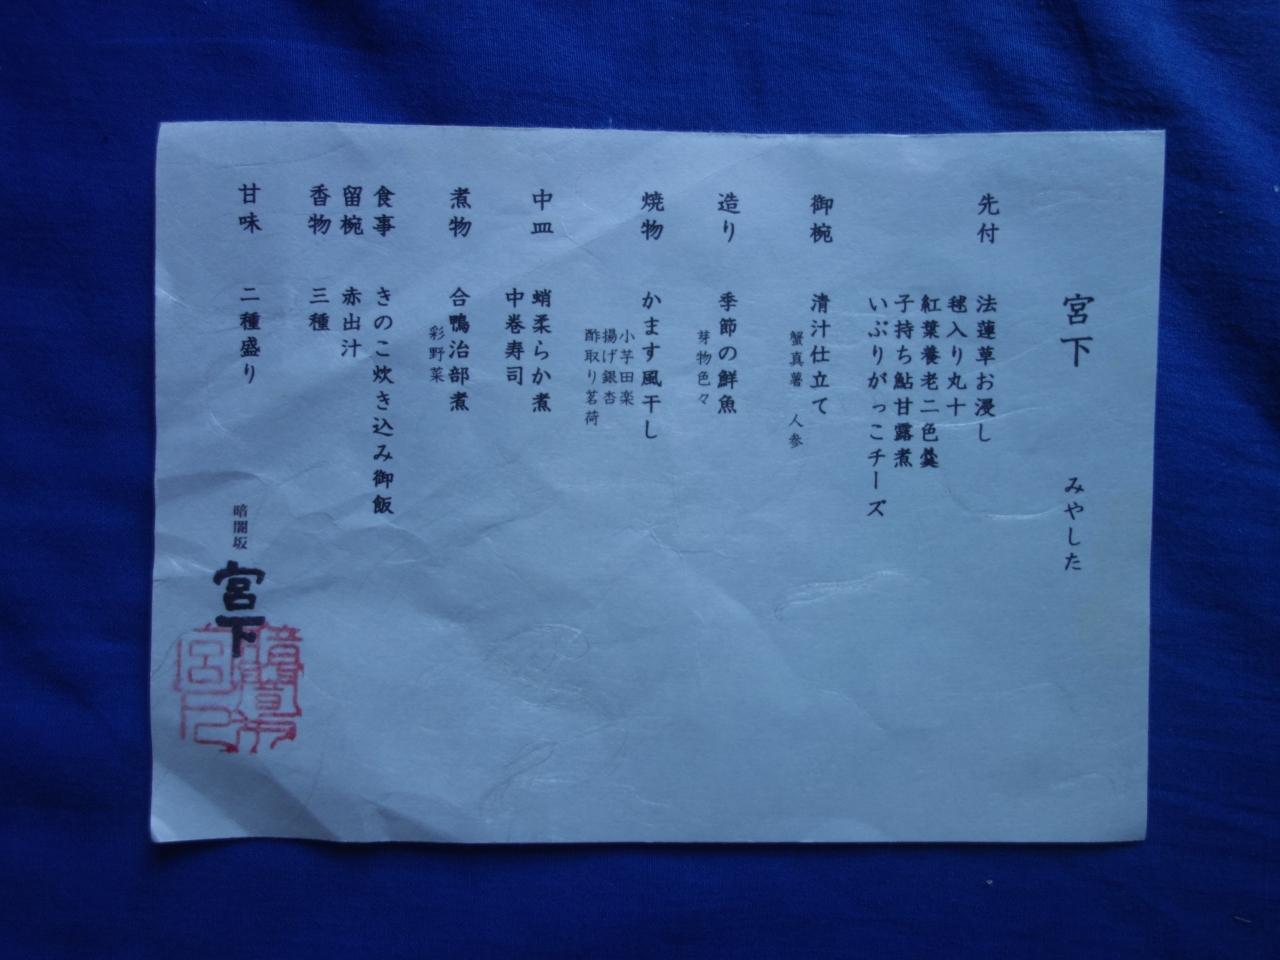 宮下　みやした
先付　法蓮草お浸し
毬入り丸十
紅葉養老二色羹
子持ち鮎甘露煮
いぶりがっこチーズ
御椀　清汁仕立て
蟹真薯　人参
造り　季節の鮮魚
芽物色々
焼物　かます風干し
小芋田楽
揚げ銀杏
酢取り茗荷
中皿　蛸柔らか煮
中巻寿司
煮物　合鴨治部煮
彩野菜
食事　きのこ炊き込み御飯
留椀　赤出汁
香物　三種
甘味　二種盛り
暗闇坂
宮下